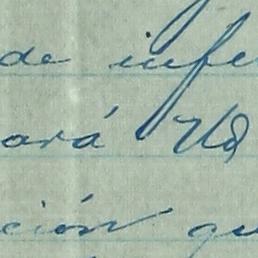 de infe
ará Ud
ción qu